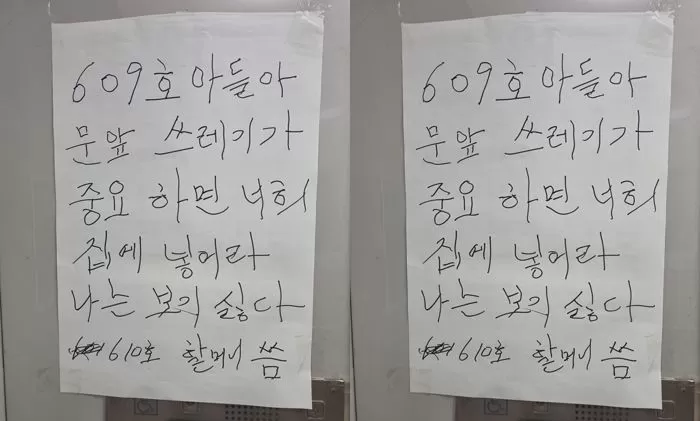 609호 아들아
문앞 쓰레기가
중요 하면 너희
집에 넣어라
나는 보기 싫다
610호 할머니 씀
609호 아들아
문앞 쓰레기가
중요 하면 너희
집에 넣어라
나는 보기 싫다
610호 할머니 씀